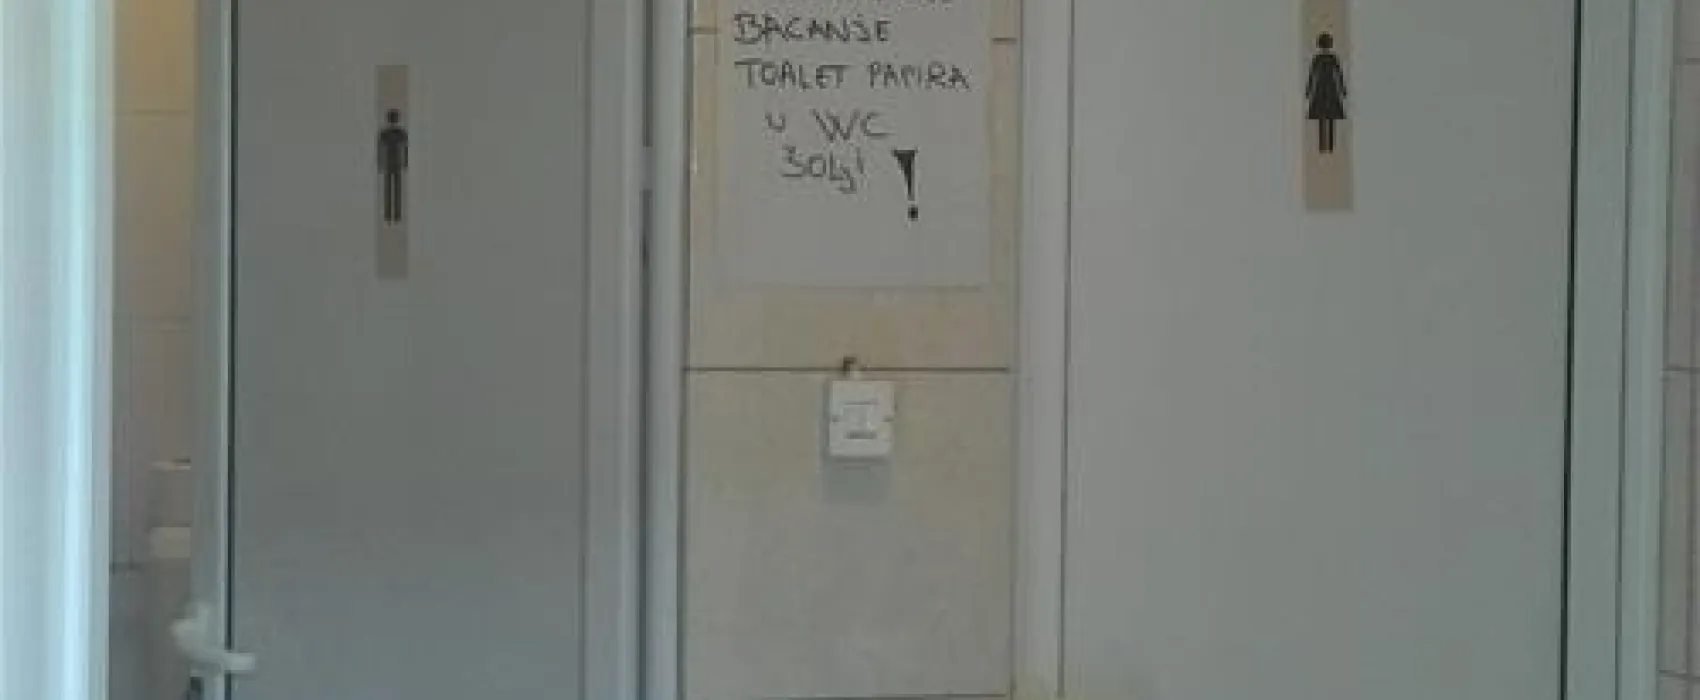 BACANJE
TOALET PAPIRA
U WC
ŠOLJI !